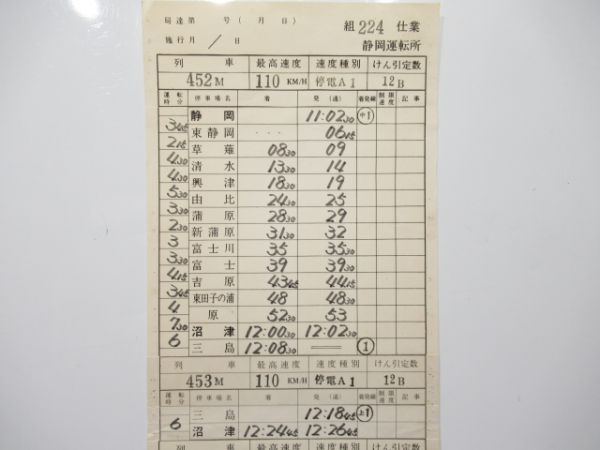 局達第 号(月 日)
施行月 / 日
組 224 仕業
静岡運転所
列 車 最高速度 速度種別 けん引定数
452M 110 KM/H 停電A1 12B
運転時分 停車場名 着 発(通) 着発線 制限速度 記事
静岡 11:02 30 中1
3 45
東静岡 ... 06 15
2 15
草薙 08 30 09
4 30
清水 13 30 14
4 30
興津 18 30 19
5 30
由比 24 30 25
3 30
蒲原 28 30 29
2 30
新蒲原 31 30 32
3
富士川 35 35 30
3 30
富士 39 39 30
4 15
吉原 43 45 44 15
3 45
東田子の浦 48 48 30
4
原 52 30 53
7 30
沼津 12:00 30 12:02 30
6
三島 12:08 30 == 1
列 車 最高速度 速度種別 けん引定数
453M 110 KM/H 停電A1 12B
運転時分 停車場名 着 発(通) 着発線 制限速度 記事
三島 12:18 45 上1
6
沼津 12:24 45 12:26 45
列 車 最高速度 速度種別 けん引定数